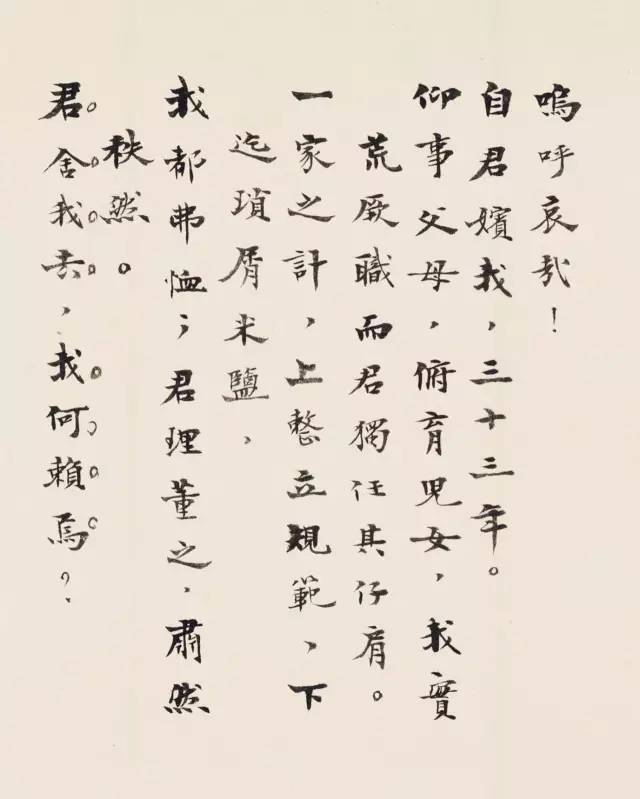 嗚呼哀哉！
自君嬪我，三十三年。
仰事父母，俯育兒女，我實
荒厥職而君獨任其仔肩。
一家之計，上整立規範，下
迄瑣屑米鹽，
我都弗恤；君理董之，肅然
秩然。
君舍我去，我何賴焉？